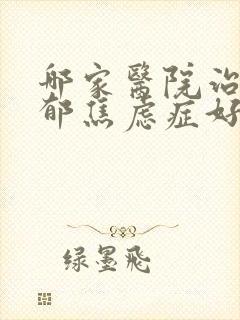 哪家醫院治
郁焦虑症好
绿墨飛